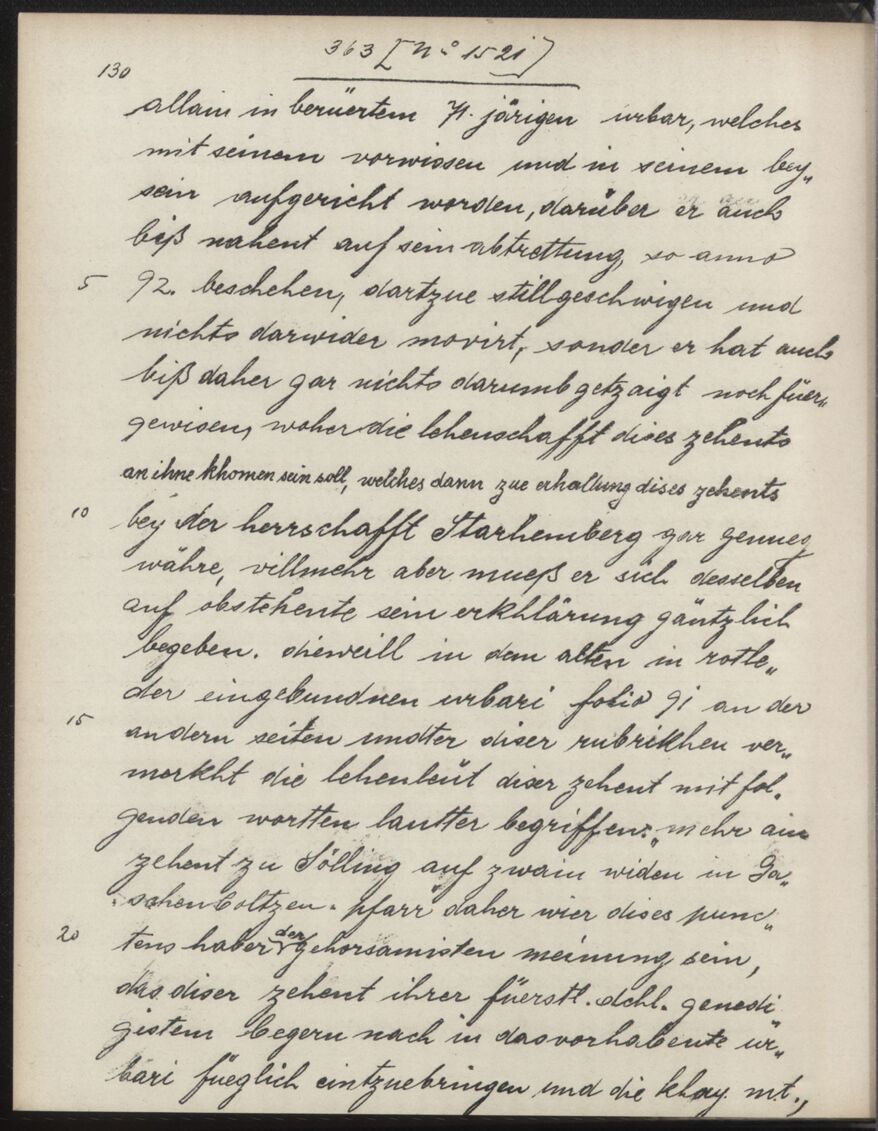 363 [No 1521]
130
allain in berüertem 71. järigen urbar, welches
mit seinem vorwissen und in seinem bey„
sein aufgericht worden, darüber er auch
biß nahent auf sein abtrettung, so anno
5 92. beschehen, dartzue stillgeschwigen und
nichts darwider movirt, sonder er hat auch
biß daher gar nichts darumb getzaigt noch füer„
gewisen, woher die lehenschafft dises zehents
an ihne khomen sein soll, welches dann zue erhaltung dises zehents
10 bey der herrschafft Starhemberg gar genueg
währe, villmehr aber mueß er sich desselben
auf obstehente sein erkhlärung gäntzlich
begeben. dieweill in dem alten in rotle„
der eingebundnen urbari folio 91 an der
15 andern seiten undter diser rubrikhen ver„
merkht die lehenleüt diser zehent mit fol.
genden wortten lautter begriffen: „mehr ain
zehent zu Sölling auf zwain widen in Ga„
schenboltzen. pfarr" daher wier dises punc„
20 tens haber der gehorsamisten meinung sein,
das diser zehent ihrer füerstl. dchl. genedi
gistem begern nach in das vorhabente ur„
bari füeglich eintzuebringen und die khay. mt.,